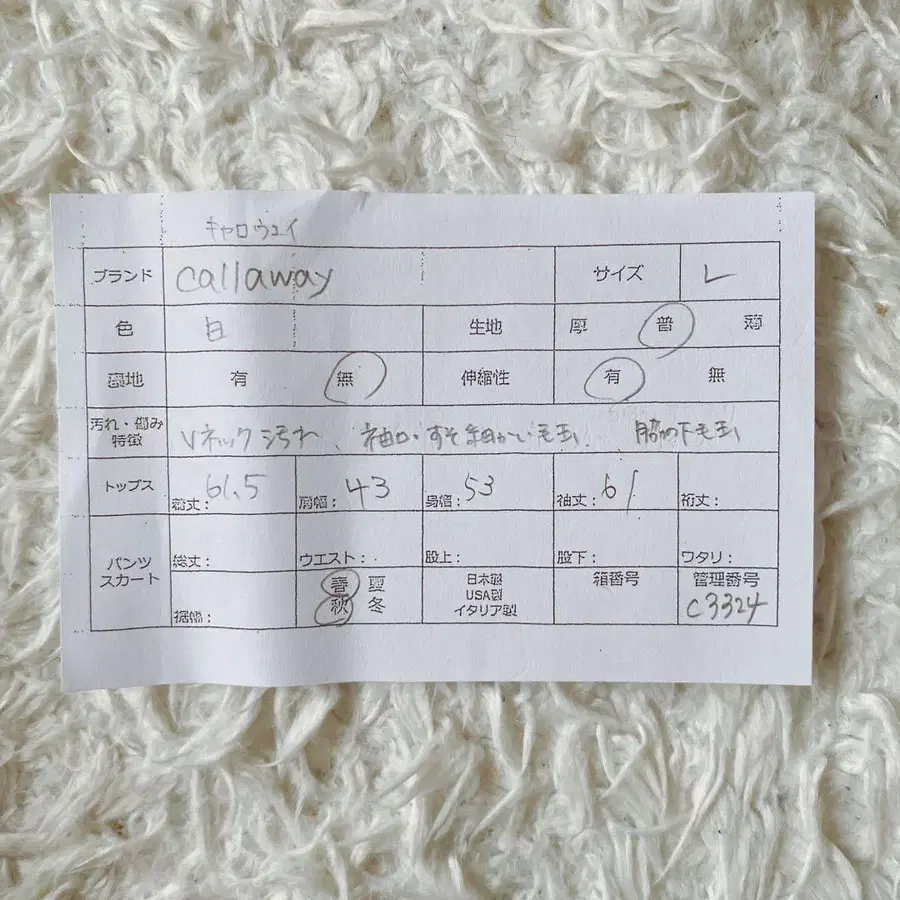 キャロウェイ
ブランド callaway サイズ L
色 白 生地 厚 普 薄
裏地 有 無 伸縮性 有 無
汚れ・傷み
特徴 Vネック汚れ、袖口・すそ細かい毛玉、脇の下毛玉
トップス 着丈: 61.5 肩幅: 43 身幅: 53 袖丈: 61 裄丈:
パンツ
スカート 総丈: ウエスト: 股上: 股下: ワタリ:
裾幅: 春 夏
秋 冬
日本製
USA製
イタリア製
箱番号
管理番号
C3324